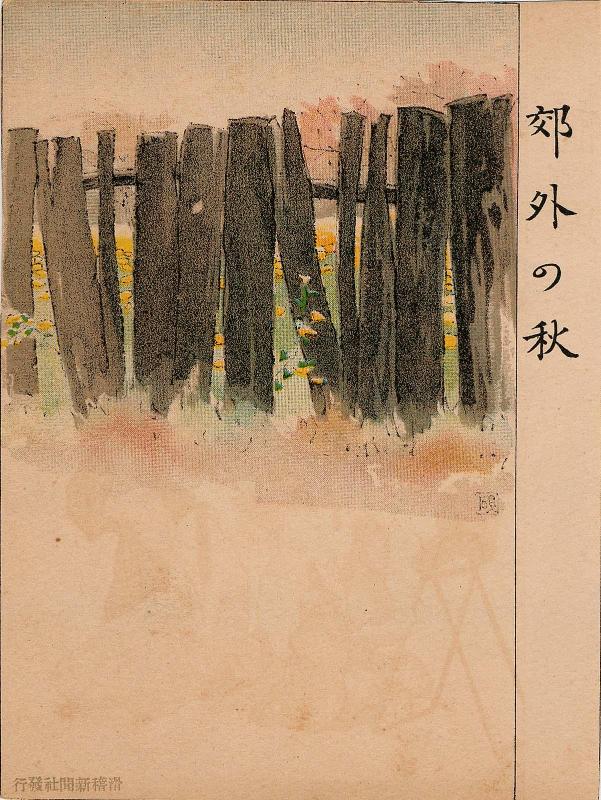 郊外の秋
滑稽新聞社發行